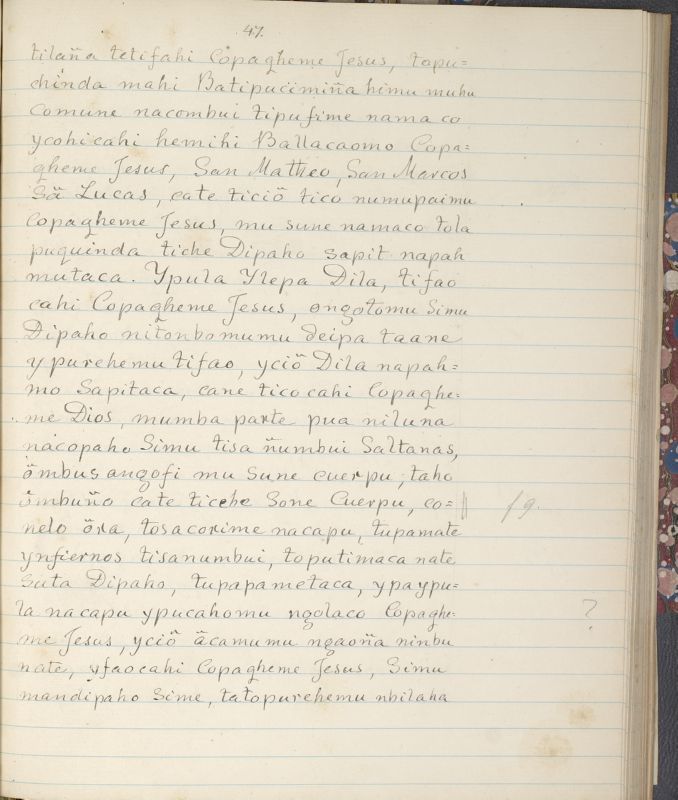 47.
tilaña tetifahi Copagheme Jesus, topu=
chinda mahi Batipucimiña himu muhu
comune nacombui tipufime nama co
ycohicahi hemihi Ballacaomo Copa=
gheme Jesus, San Mattheo, San Marcos
Sã Lucas, cate ticiõ tico numupaimu
Copagheme Jesus, mu sune namaco tola
puquinda tiche Dipaho sapit napah
mutaca. Ypula Ylepa Dila, tifao
cahi Copagheme Jesus, ongotomu Simu
Dipaho nitonbomumu deipa taane
ypurehemu tifao, yciõ Dila napah=
mo Sapitaca, cane tico cahi Copaghe=
me Dios, mumba parte pua niluna
nacopaho Simu tisa ñumbui Saltanas,
õmbus angofi mu Sune cuerpu, taho
õmbuño cate ticehe Sone Cuerpu, co=
nelo õra, tosacorime nacapu, tupamate
ynfiernos tisanumbui, toputimaca nate
suta Dipaho, tupapametaca, ypaypu=
la nacapu ypucahomu ngolaco Copaghe=
me Jesus, yciõ ãcamumu ngaoña ninbu
nate, yfaocahi Copagheme Jesus, Simu
mandipaho Sime, tatopurehemu nbilaha
19.
?